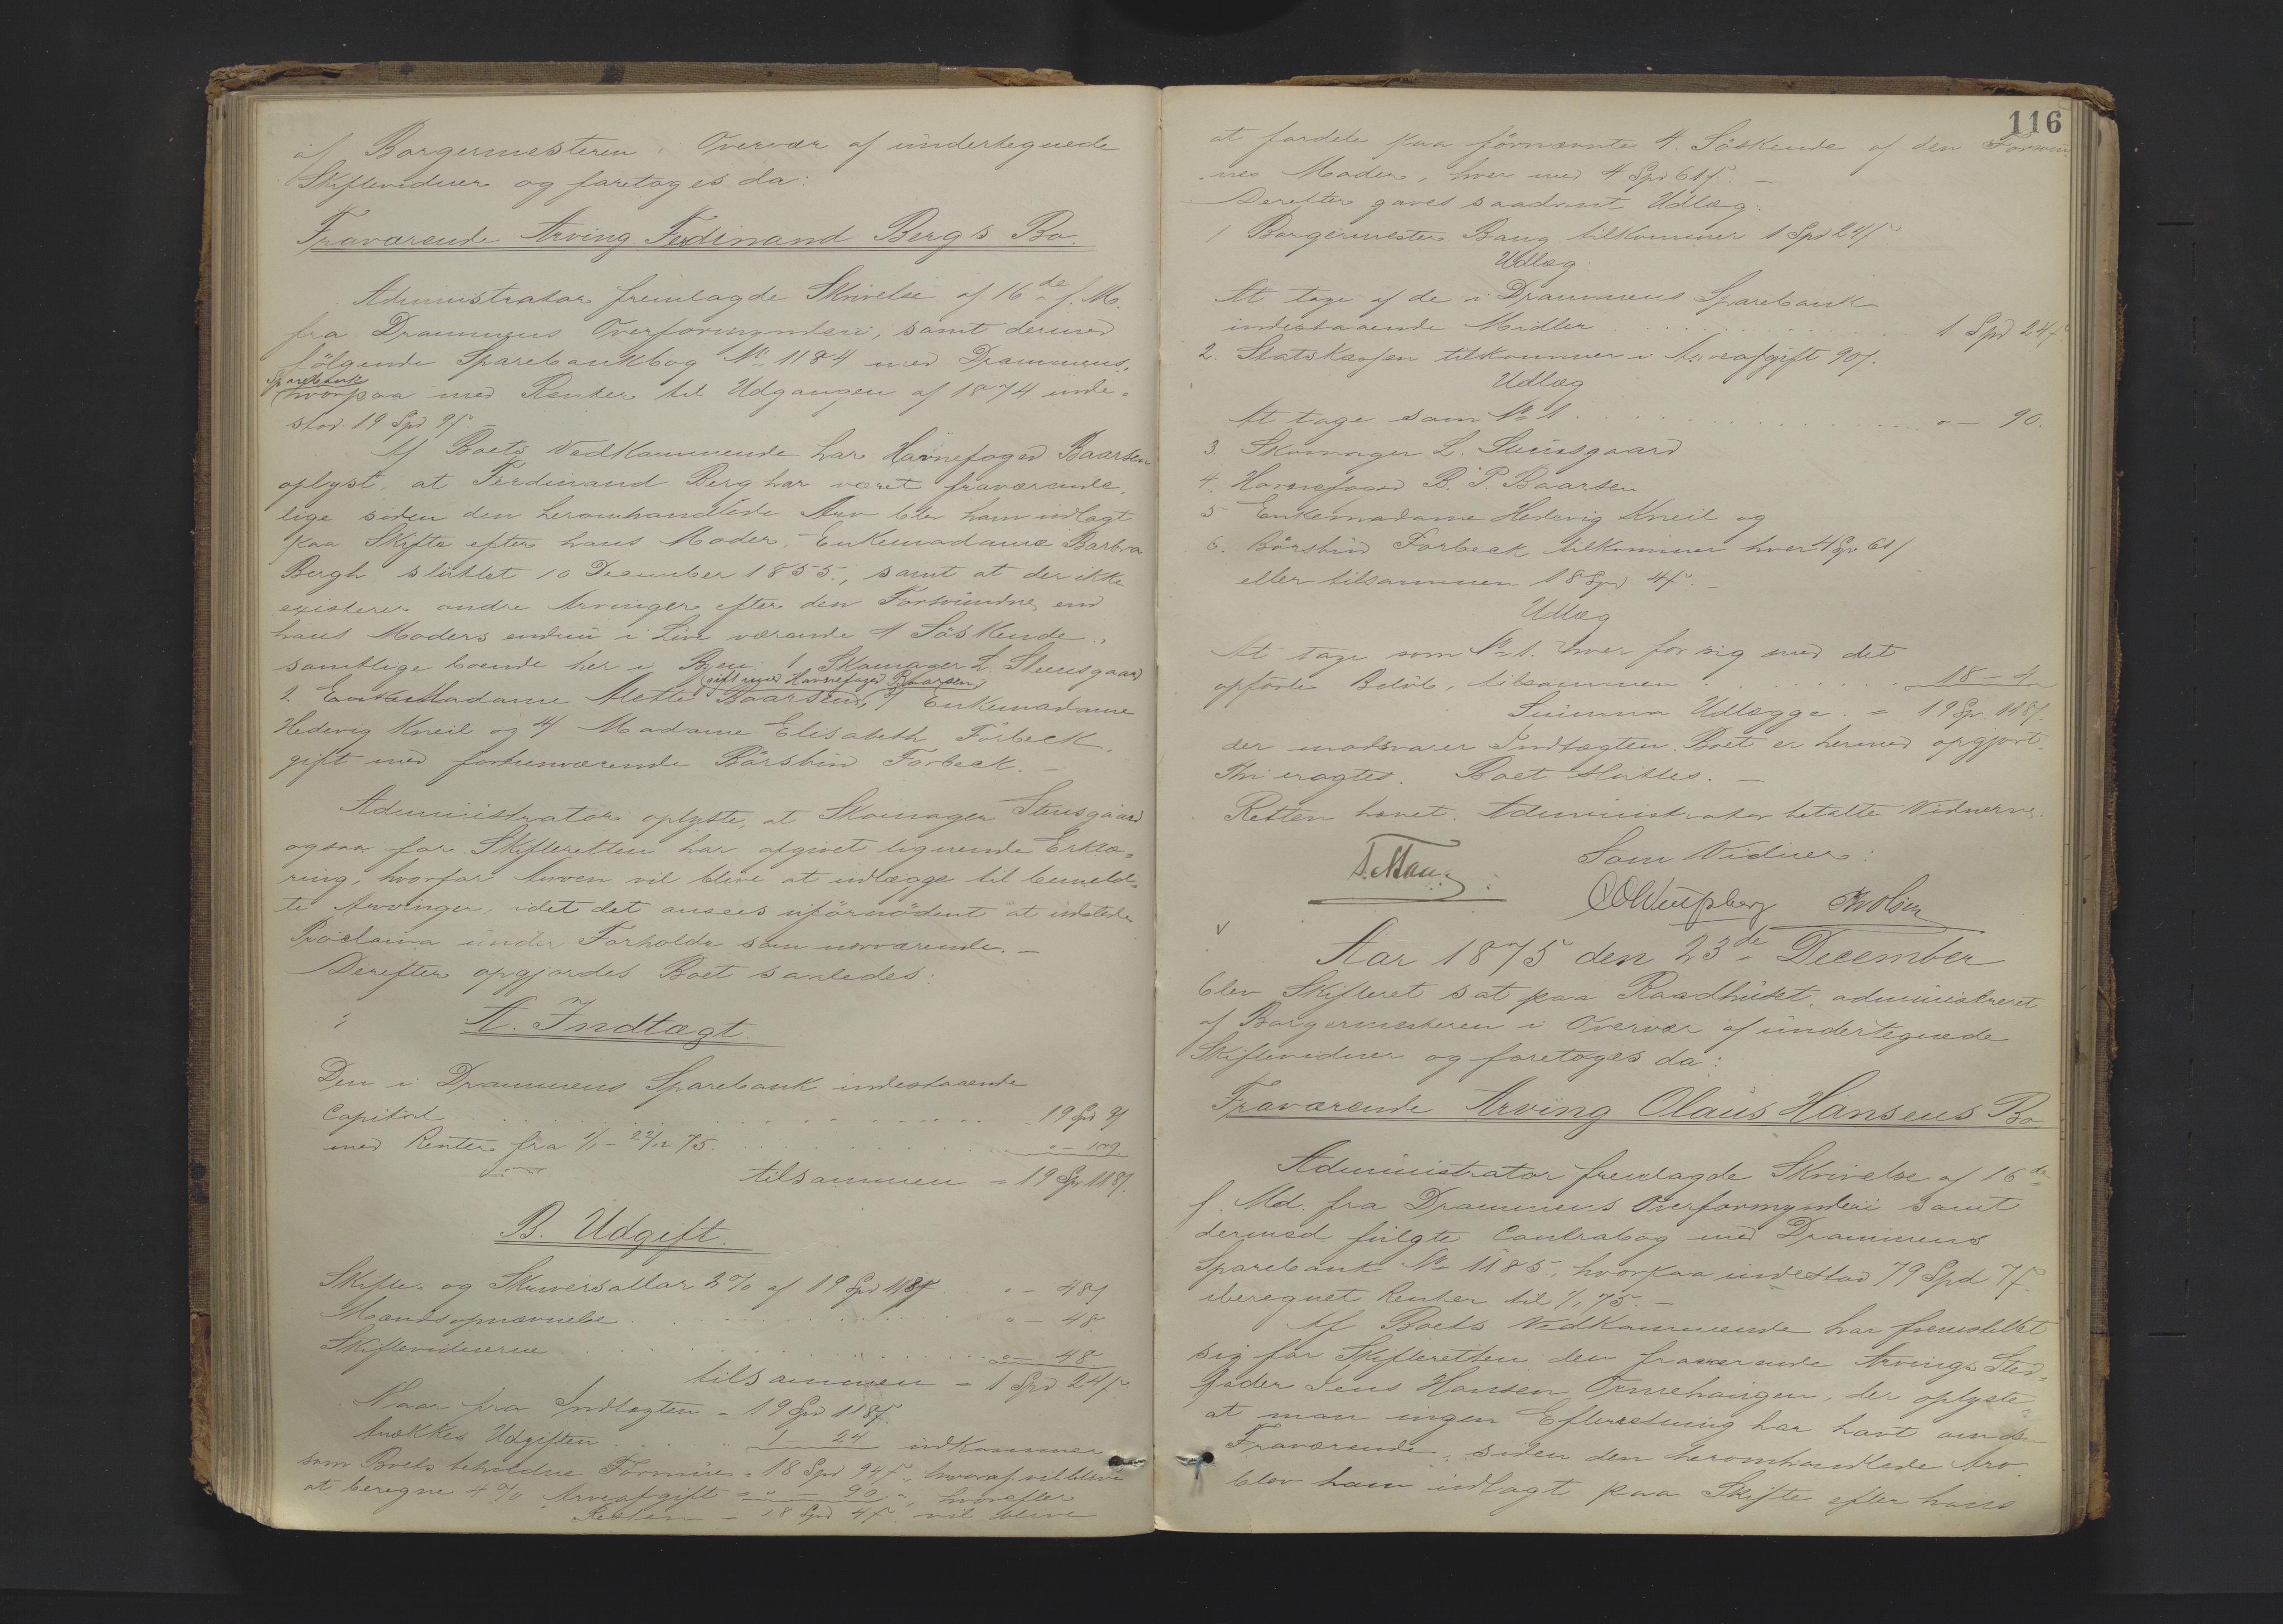 af Borgermesteren i Overvær af undertegnede
Skiftevidner og foretoges da:
Fraværende Arving Ferdinand Bergs Bo.
Administrator fremlagde Skrivelse af 16de f. M.
fra Drammens Overformynderi, samt dermed
fölgende Sparebankbog No 1184 med Drammens
Sparebank
hvorpaa med Renter til Udgangen af 1874 inde-
stod 19 Spd 9ß.
Af Boets Vedkommende har Havnefoged Baarsen
oplyst, at Ferdinand Berg har været fraværende
lige siden den heromhandlede Arv blev ham udlagt
paa Skifte efter hans Moder, Enkemadame Barbra
Bergh sluttet 10 December 1855, samt at der ikke
existerer andre Arvinger efter den Forsvundne end
hans Moders endnu i Live værende 4 Söskende,
samtlige boende her i Byen: 1 Skomager L. Steensgaard
gift med Havnefoged Baarsen,
2 Madame Mette Baarsen, 3 Enkemadame
Hedevig Kneil og 4/ Madame Elisabeth Forbeck,
gift med forhenværende Börsbud Forbeck. –
Administrator oplyste, at Skomager Stensgaard
ogsaa for Skifteretten har afgivet lignende Erklæ-
ring, hvorfor Arven vil blive at udlægge til bemeld-
te Arvinger, idet det ansees ufornödent at udstede
Proclama under Forholde som nærværende. –
Derefter opgjordes Boet saaledes:
A. Indtægt.
Den i Drammens Sparebank indestaaende
Capital . . . 19 Spd 9ß
med Renter fra 1/1 - 22/12 75. . . . " – 109
tilsammen = 19 Spd 118ß.
B. Udgift.
Skifte- og Skriversallar 2% af 19 Spd 118ß . . " – 48ß
Mandsopnævnelse . . . " – 48.
Skiftevidnerne . . . " – 48
tilsammen = 1 Spd 24ß.
Naar fra Indtægten = 19 Spd 118ß.
trækkes Udgiften . . . 1 24 udkommer
som Boets beholdne Formue = 18 Spd 94ß, hvoraf vil blive
at beregne 4% Arveafgift = " – 90 ", hvorefter
Resten = 18 Spd 4ß vil blive
116
at fordele paa förnævnte 4 Söskende af den Forsvun
nes Moder, hver med 4 Spd 61ß. –
Derefter gaves saadant Udlæg:
1 Borgermester Bang tilkommer 1 Spd 24ß
Udlæg
At tage af de i Drammens Sparebank
indestaaende Midler . . . 1 Spd 24ß
2. Statskassen tilkommer i Arveafgift 90ß.
Udlæg
At tage som No 1 . . . " – 90.
3. Skomager L. Steensgaard
4. Havnefoged B. P. Baarsen
5 Enkemadame Hedevig Kneil og
6. Börsbud Forbeck tilkommer hver 4 Spd 61ß
eller tilsammen 18 Spd 4ß. –
Udlæg
At tage som No 1. hver for sig med det
opförte Belöb, tilsammen . . . 18 – 4
Summa Udlægge . = 19 Spd 118ß.
der modsvarer Indtægten. Boet er hermed opgjort.
Thi eragtes: Boet sluttes. –
Retten hævet. Administrator betalte Vidnerne.
Som Vidner:
Aar 1875 den 23de December
blev Skifteret sat paa Raadhuset, administreret
af Borgermesteren i Overvær af undertegnede
Skiftevidner og foretoges da:
Fraværende Arving Olaus Hansens Bo
Administrator fremlagde Skrivelse af 16de
f. Md. fra Drammens Overformynderi samt
dermed fulgte Contrabog med Drammens
Sparebank No 1185, hvorpaa indestod 79 Spd 7ß
iberegnet Renter til 1/1 75. –
Af Boets Vedkommende har fremstillet
sig for Skifteretten den fraværende Arvings Sted-
fader Jens Hansen, der oplyste
at man ingen Efterretning har havt om den
Fraværende, siden den heromhandlede Arv
blev ham udlagt paa Skifte efter hans